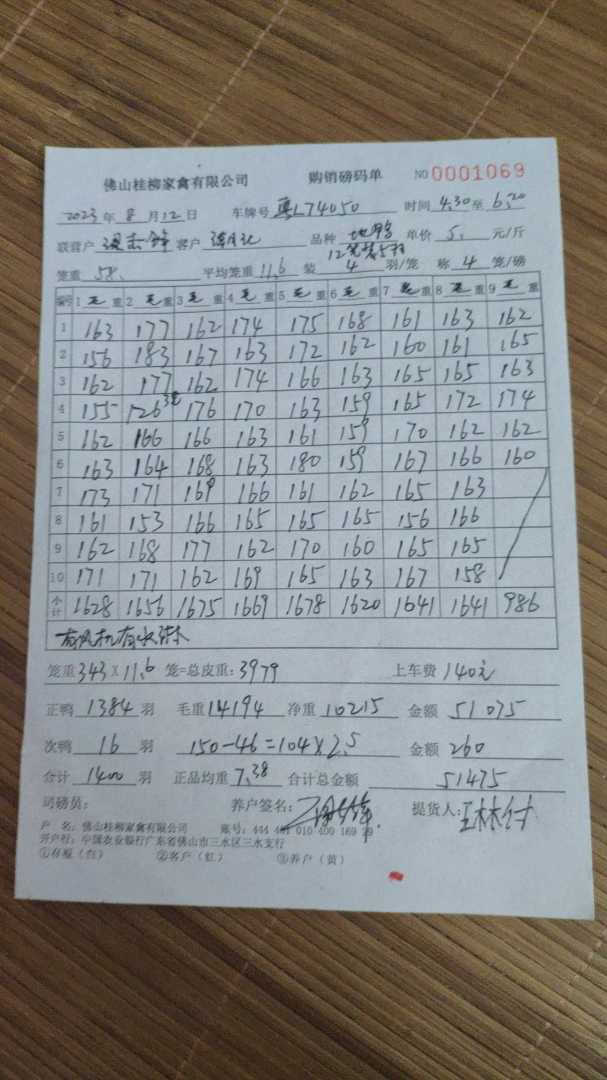 佛山桂柳家禽有限公司 购销磅码单 NO 0001069
2023年 8 月 12 日 车牌号 粤L74050 时间 4:30 至 6:20
联营户 客户 品种 单价 5. 元/斤
12笼装5羽
笼重 58. 平均笼重 11.6 装 4 羽/笼 称 4 笼/磅
编号 1 毛 重 2 毛 重 3 毛 重 4 毛 重 5 毛 重 6 毛 重 7 毛 重 8 毛 重 9 毛 重
1 163 177 162 174 175 168 161 163 162
2 156 183 167 163 172 162 160 161 165
3 162 177 162 174 166 163 165 165 163
4 155 126 176 170 163 159 165 172 174
5 162 166 166 163 161 159 170 162 162
6 163 164 168 163 180 159 167 166 160
7 173 171 169 166 161 162 165 163
8 161 153 166 165 165 165 156 166
9 162 168 177 162 170 160 165 165
10 171 171 162 169 165 163 167 158
小计 1628 1656 1675 1669 1678 1620 1641 1641 986
有风机有收淋水
笼重 343 X 11.6 笼=总皮重: 3979 上车费 140元
正鸭 1384 羽 毛重 14194 净重 10215 金额 51075
次鸭 16 羽 150-46=104X2.5 金额 260
合计 1400 羽 正品均重 7.38 合计总金额 51475
司磅员: 养户签名: 提货人:
户 名: 佛山桂柳家禽有限公司 账号: 444 401 010 400 169 29
开户行: 中国农业银行广东省佛山市三水区三水支行
①存根(白) ②客户(红) ③养户(黄)